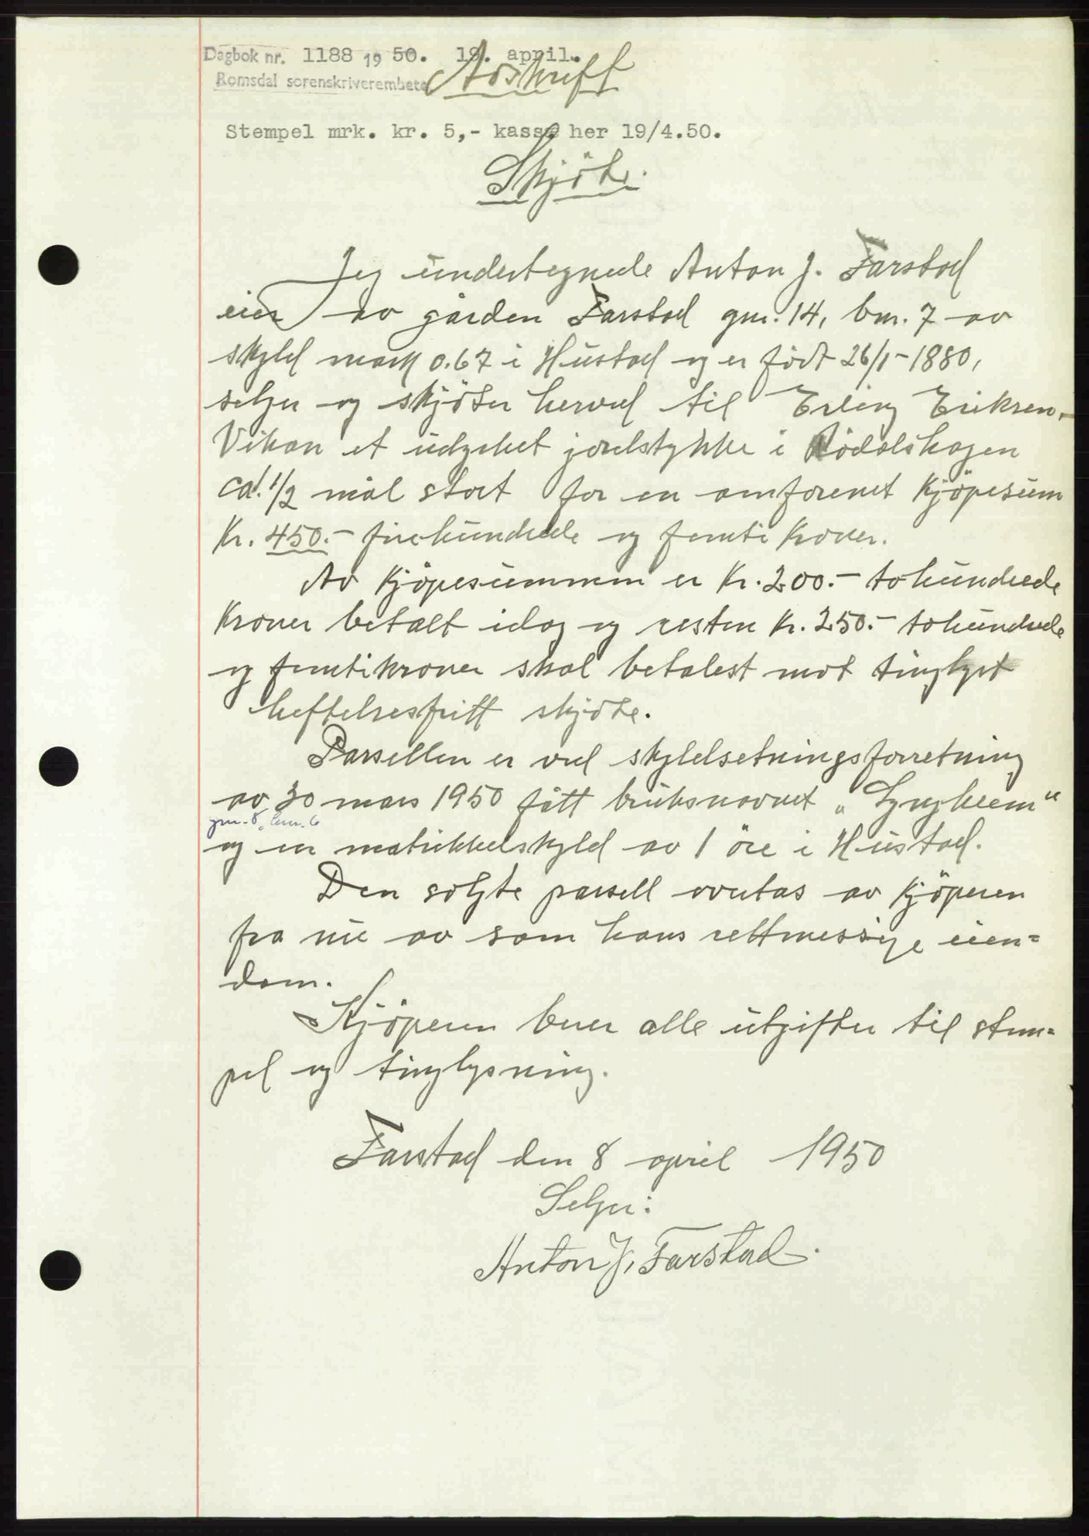 Dagbok nr. 1188 19 50. 19. april.
Romsdal sorenskriverembete
Avskrift
Stempel mrk. kr. 5,- kasse her 19/4.50.
Skjöte.
Jeg undertegnede Anton J. Farstad
eier av gården Farstad gnr. 14, bnr. 7 av
skyld mark 0.67 i Hustad og er født 26/1-1880,
selger og skjöter herved til Erling Eriksen,
Vikan et udyrket jordstykke i
ca. 1/2 mål stort for en omforenet Kjöpesum
Kr. 450.- firehundrede og femti Kroner.
Av Kjöpesummen er Kr. 200.- tohundrede
Kroner betalt idag og resten Kr. 250.- tohundrede
og femtikroner skal betalest mot tinglyst
heftelsesfritt skjöte.
Parsellen er ved skyldsetningsforretning
av 30 mars 1950 fått bruksnavnet „Lyngheim“
gnr. 8, bnr. 6
og en matrikkelskyld av 1 öre i Hustad.
Den solgte parsell overtas av Kjöperen
fra nu av som hans rettmessige eien=
dom.
Kjöperen bærer alle utgifter til stem=
pel og tinglysning.
Farstad den 8 april 1950
Selger:
Anton J. Farstad.